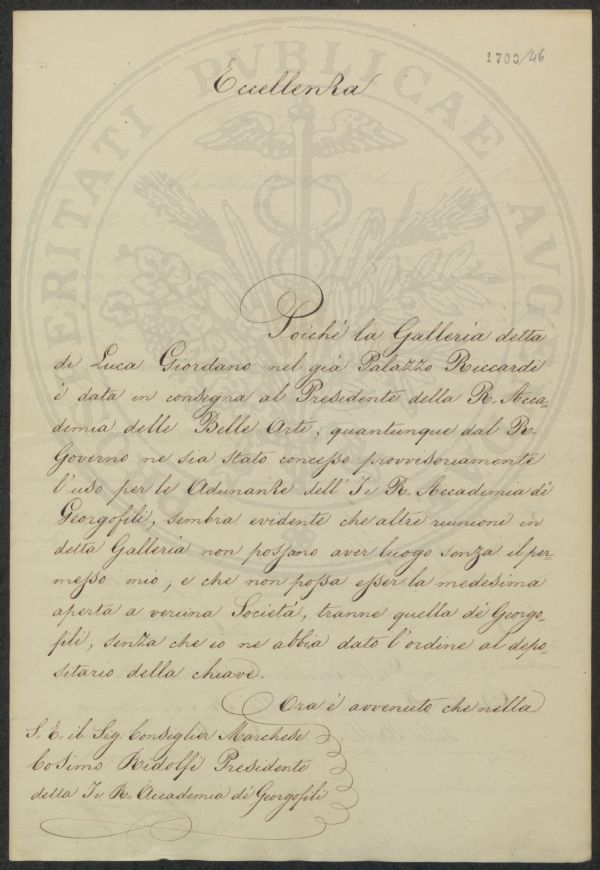 1790/46
Eccellenza
Poichè la Galleria detta
di Luca Giordano nel già Palazzo Riccardi
è data in consegna al Presidente della R. Acca=
demia delle Belle Arti, quantunque dal R.
Governo ne sia stato concesso provvisoriamente
l'uso per le Adunanze dell'I. e R. Accademia di
Georgofili, sembra evidente che altre riunioni in
detta Galleria non possano aver luogo senza il per=
messo mio; e che non possa esser la medesima
aperta a veruna Società, tranne quella dè Georgo=
fili, senza che io ne abbia dato l'ordine al depo=
sitario della chiave.
Ora è avvenuto che nella
S. E. il Sig: Consiglier Marchese
Cosimo Ridolfi Presidente
della I. e R. Accademia di Georgofili
PUBLICAE